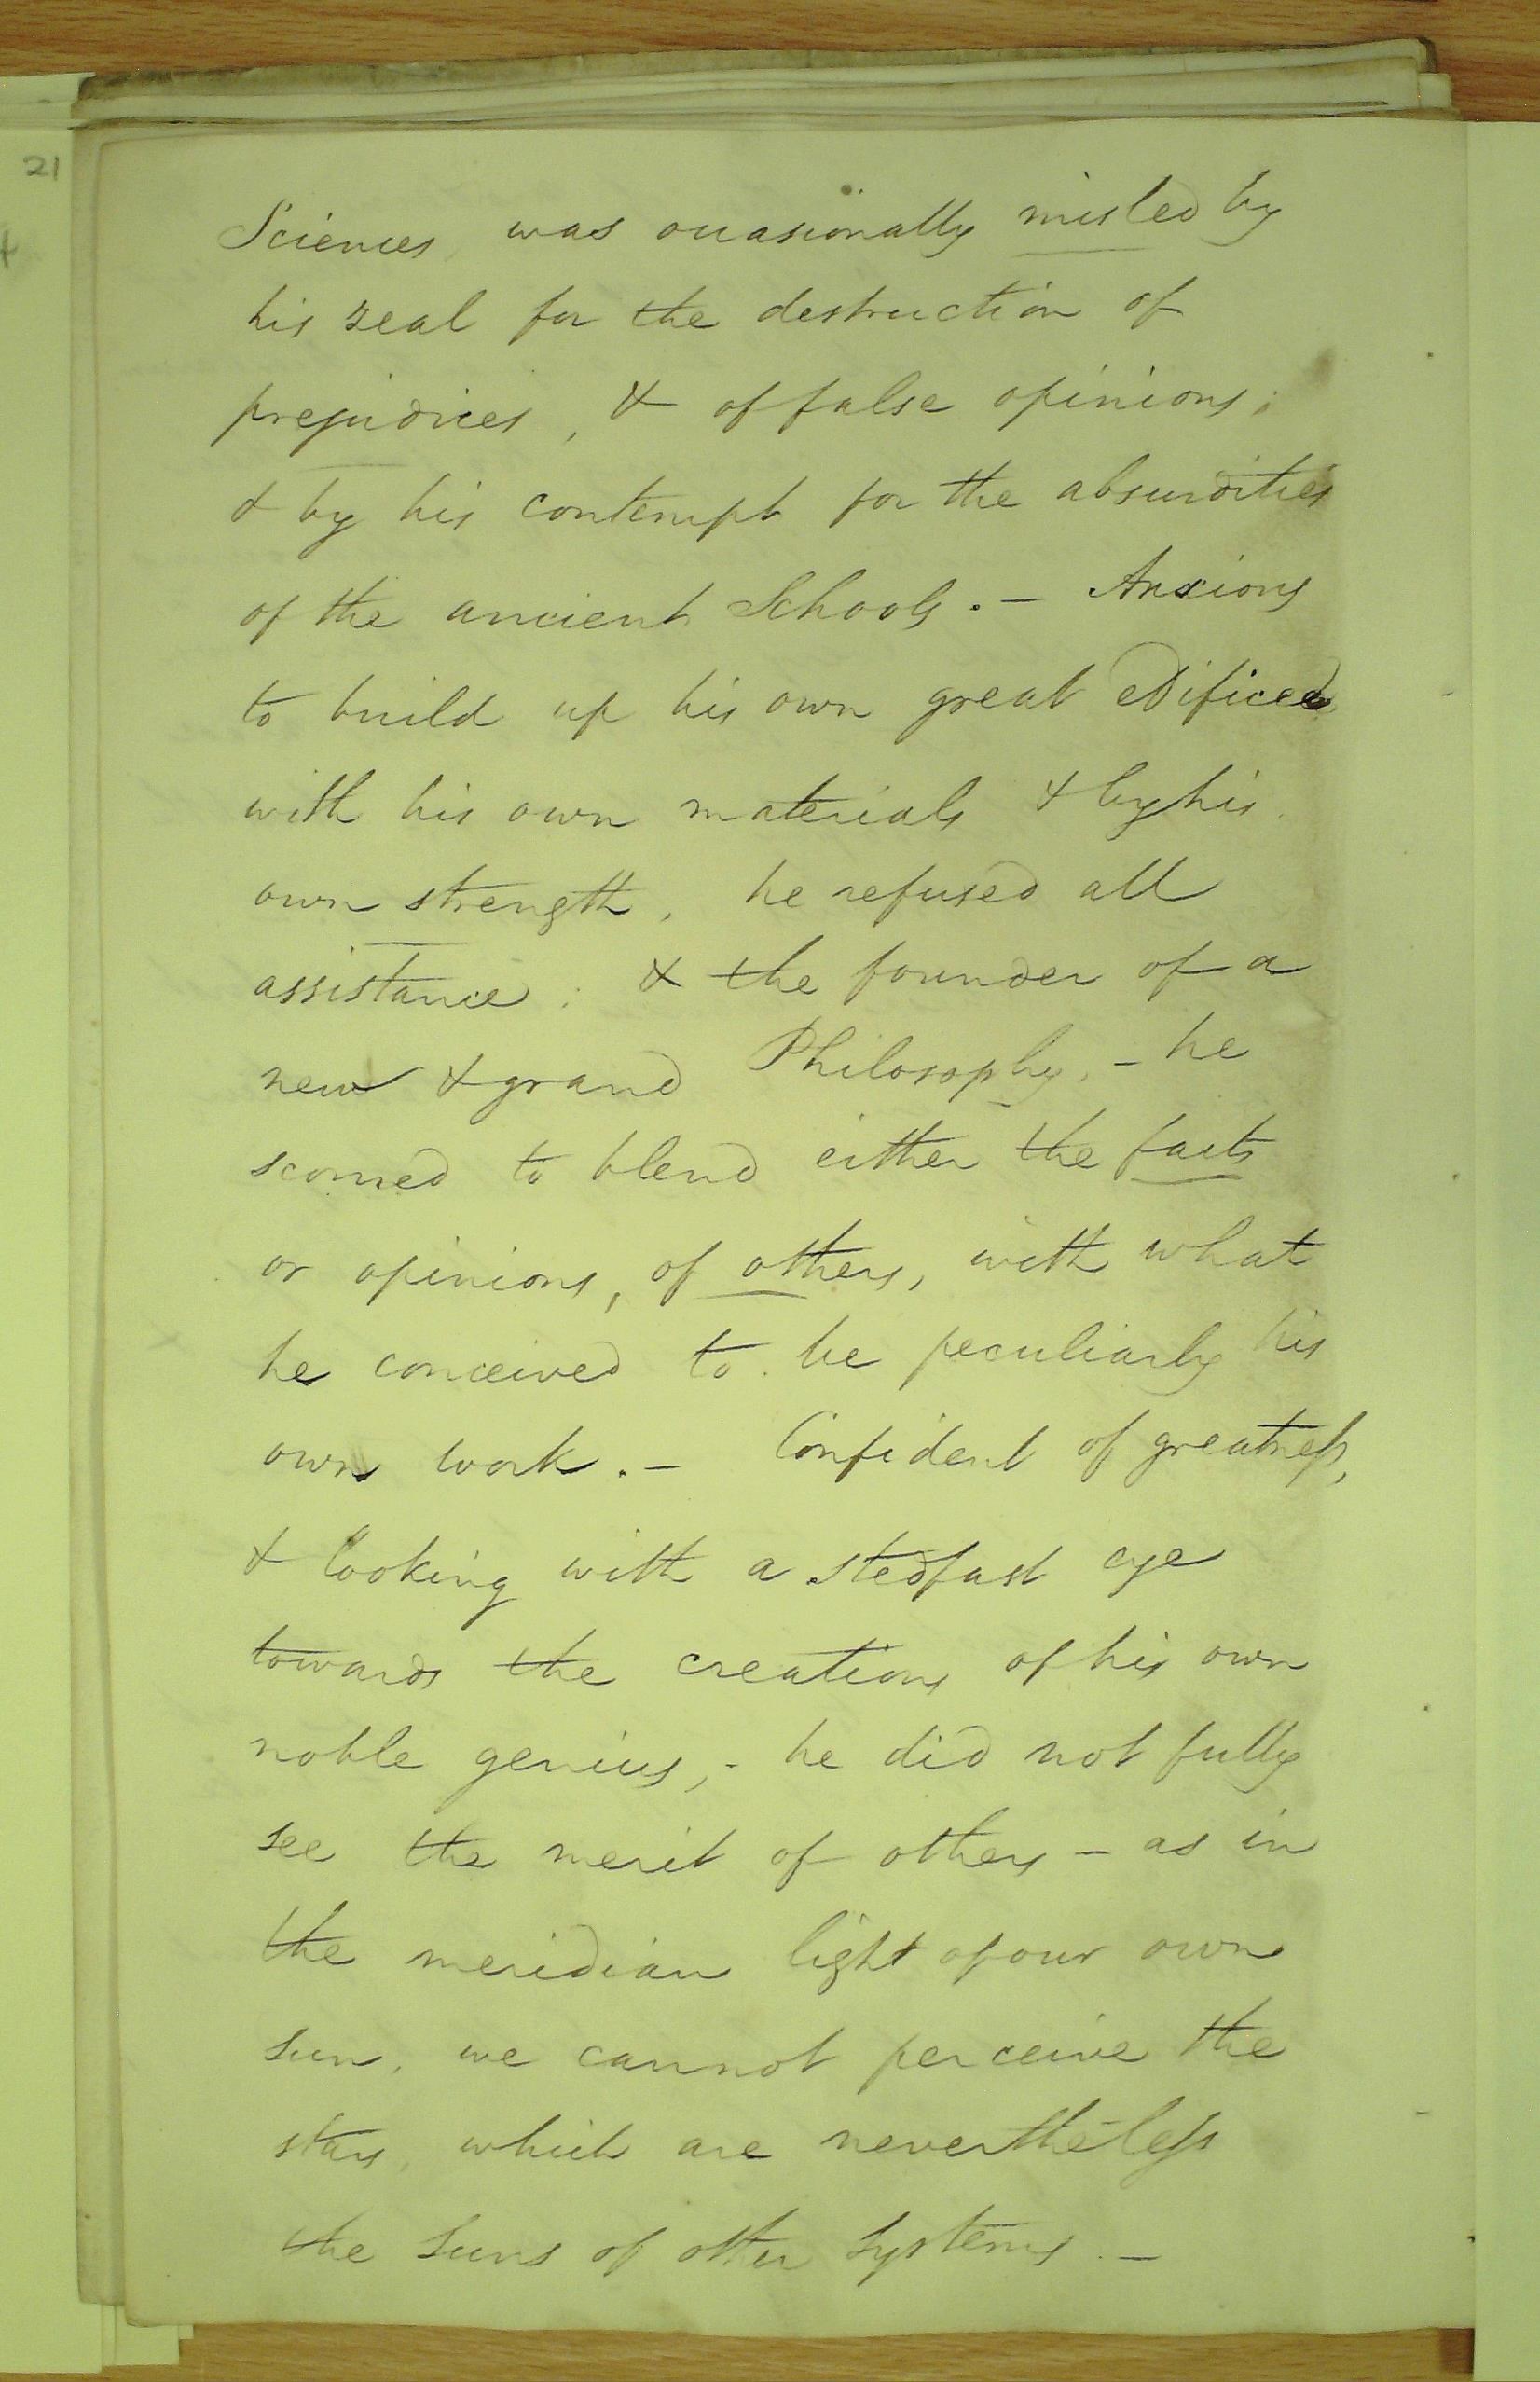 21
Sciences, was occasionally misled by
his zeal for the destruction of
prejudices, & of false opinions;
& by his contempt for the absurdities
of the ancient Schools. - Anxious
to build up his own great edifice
with his own materials & by his
own strength, he refused all
assistance; & the founder of a
new & grand Philosophy, - he
scorned to blend either the facts
or opinions, of others, with what
he conceived to be peculiarly his
own work. - Confident of greatness,
& looking with a stedfast eye
towards the creations of his own
noble genius, - he did not fully
see the merit of others - as in
the meridian light of our own
sun, we cannot perceive the
stars, which are never-the-less
the Suns of other Systems. -